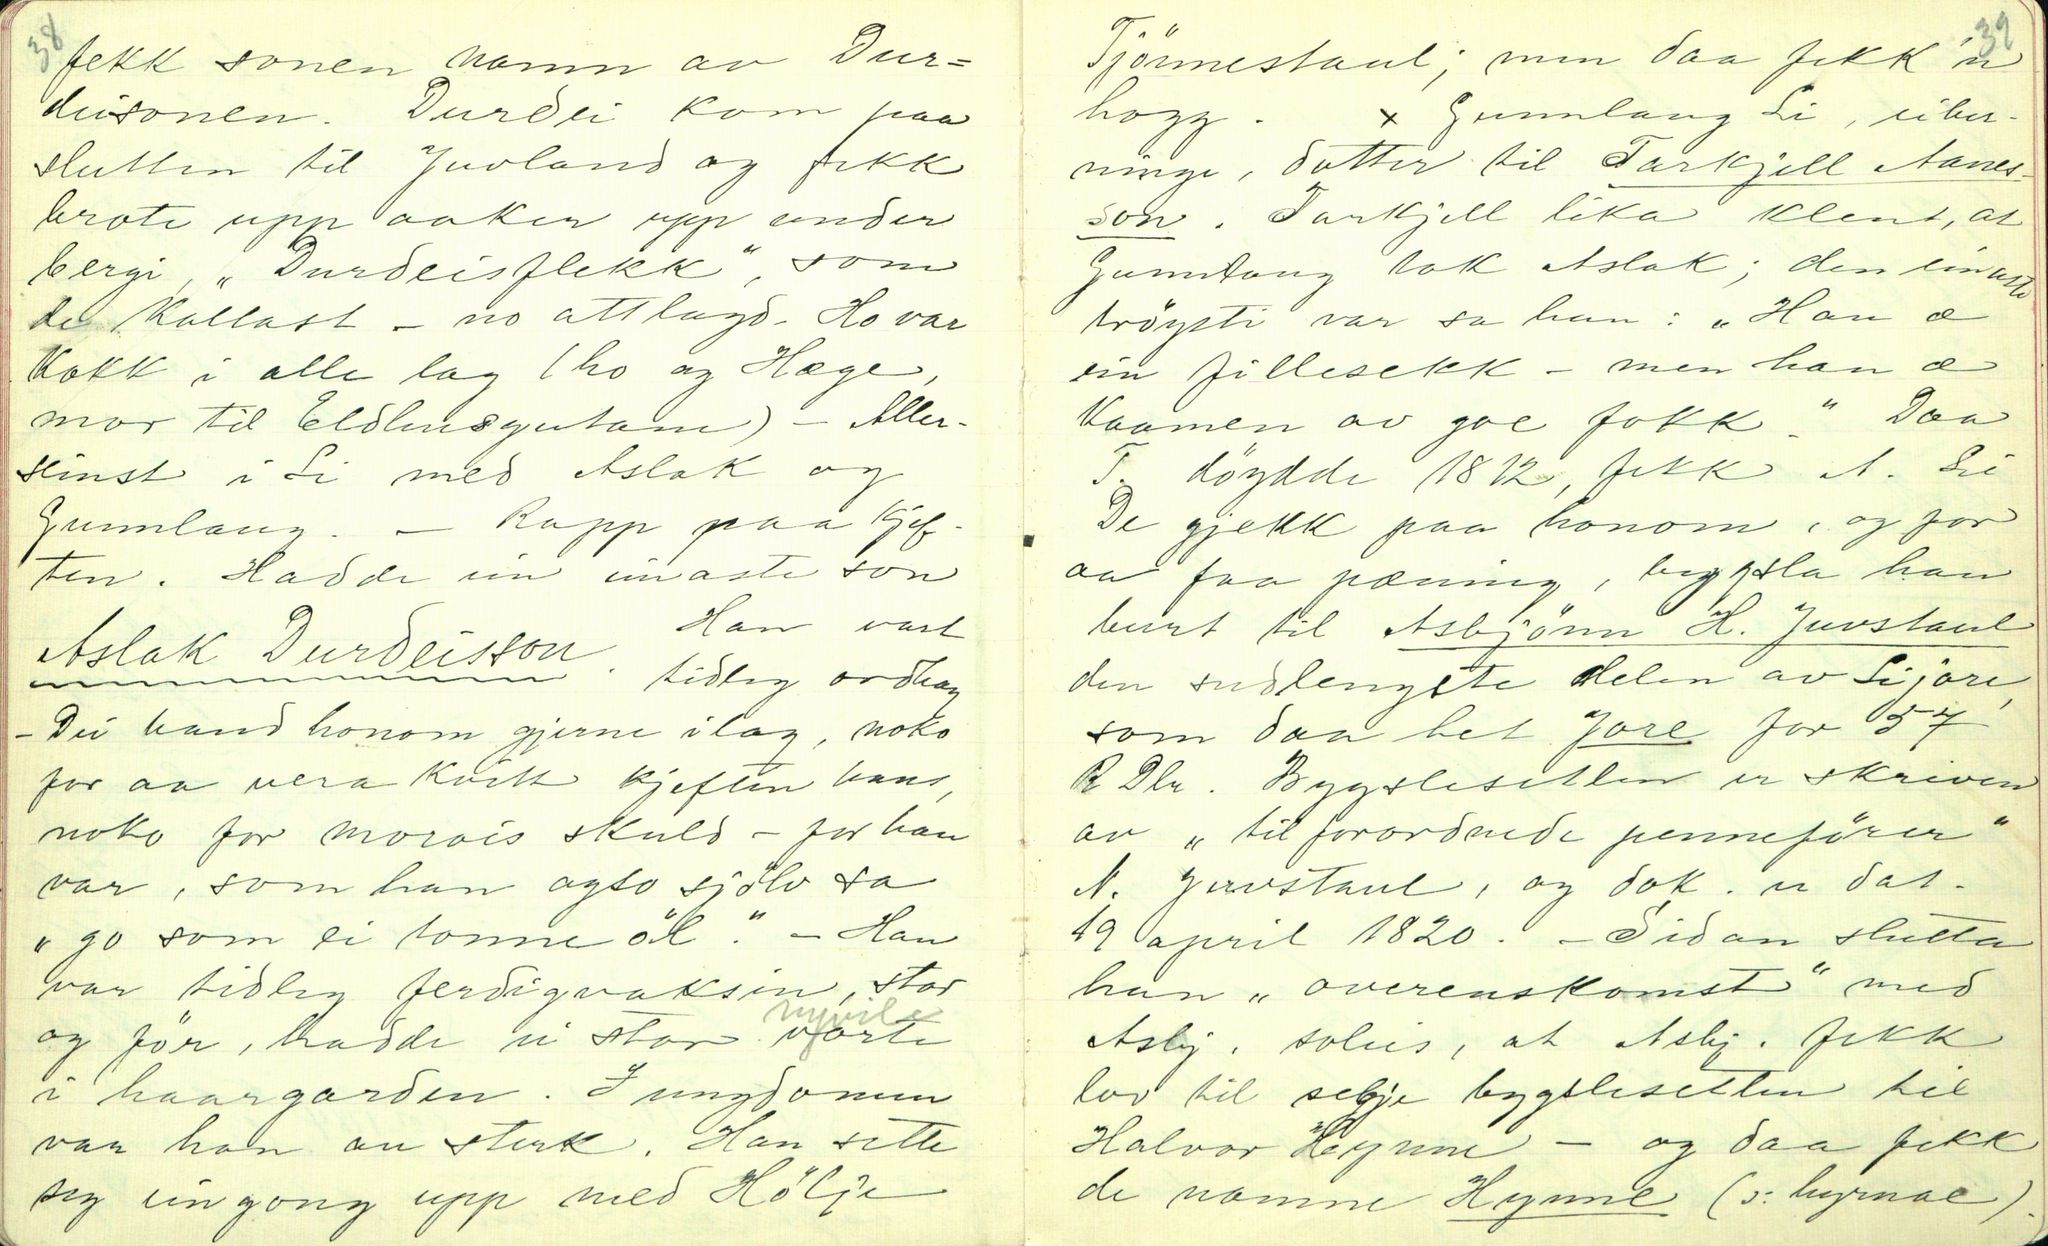 38
fekk sonen namn av Dur=
deisonen. Durdei kom paa
slutten til Juvland og fekk
brote upp aaker upp under
bergi, „Durdeisflekk“, som
de kallast - no attlagd. Ho var
kokk i alle lag (ho og Hæge,
mor til Eldhusgutane) - Aller-
seinst i Li med Aslak og
Gunnlaug. - Rapp paa kjef-
ten. Hadde ein einaste son
Aslak Durdeisson. Han vart
tidleg ordhag
- Dei baud honom gjerne i lag, noko
for aa vera kvitt kjeften hans,
noko for morois skuld - for han
var, som han ogso sjölv sa
„go som ei tonne öl.“ - Han
var tidleg ferdigvaksin, stor
og för, hadde ei stor vorte
i haargarden. I ungdomen
var han au sterk. Han sette
seg ein gong upp med Hölje
39
Tjönnestaul; men daa fekk 'n
hogg. x Gunnlaug Li,
ninge, dotter til Tarkjell Aanes-
son. Tarkjell lika klent, at
Gunnlaug tok Aslak; den einaste
tröysti var sa han: „Han æ
ein fillesekk - men han æ
kaamen av goe fokk.“ Daa
T. döydde 1812, fekk A. Li
De gjekk paa honom, og for
aa faa pæning, bygsla han
burt til Asbjönn H. Juvstaul
den sudlengste delen av Lijore,
som daa het Jore for 57
R Dlr. Bygslesetlen er skriven
av „tilforordnede penneförer“
N. Juvstaul, og dok. er dat.
19 april 1820. - Sidan slutta
han „overenskomst“ med
Asbj. soleis, at Asbj. fekk
lov til selje bygslesetlen til
Halvor Hynne - og daa fekk
de namne Hynne (ɔ: hyrnae).